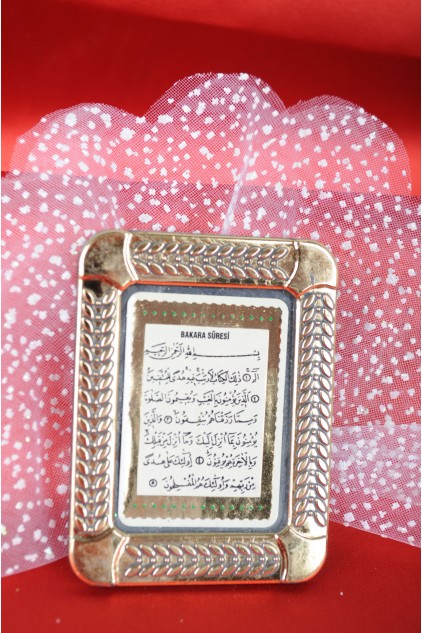 BAKARA SÛRESİ
بسم الله الرحمن الرحيم
الٓمٓ ۝١ ذٰلِكَ الْكِتَابُ لَا رَيْبَ فِيهِ هُدًى لِلْمُتَّقِينَ
۝٢ اَلَّذِينَ يُؤْمِنُونَ بِالْغَيْبِ وَيُقِيمُونَ الصَّلٰوةَ
وَمِمَّا رَزَقْنَاهُمْ يُنْفِقُونَ ۝٣ وَالَّذِينَ
يُؤْمِنُونَ بِمَا اُنْزِلَ اِلَيْكَ وَمَا اُنْزِلَ مِنْ قَبْلِكَ
وَبِالْاٰخِرَةِ هُمْ يُوقِنُونَ ۝٤ اُولٰئِكَ عَلٰى هُدًى
مِنْ رَبِّهِمْ وَاُولٰئِكَ هُمُ الْمُفْلِحُونَ ۝٥